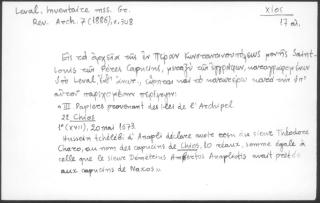 Laval. Inventaire mss. Gr.
Rev. Arch. 7 (1886), σ. 308
ΧΙΟΣ
17 αἰ.
Εἰς τὰ ἀρχεῖα τῆς ἐν Πέραν Κωνσταντινουπόλεως μονῆς Saint-
Louis τῶν Pères Capucins, μεταξὺ τῶν ἐγγράφων, καταγραφομένων
ὑπὸ Laval, ὑπ' ἀριθ. , κατὰ τὴν ὑπ'
αὐτοῦ παρεχομένην περίληψιν:
"III Papiers provenant des îles de l'Archipel.
22. Chios
1° (XVII), 20 mai 1673.
Hussein tchélébi d'Anapli déclare avoir reçu du sieur Théodore
Charo, au nom des capucins de Chios, 60 réaux, somme égale à
celle que le sieur Démétrius Anapliotis avait prêtée
aux capucins de Naxos."